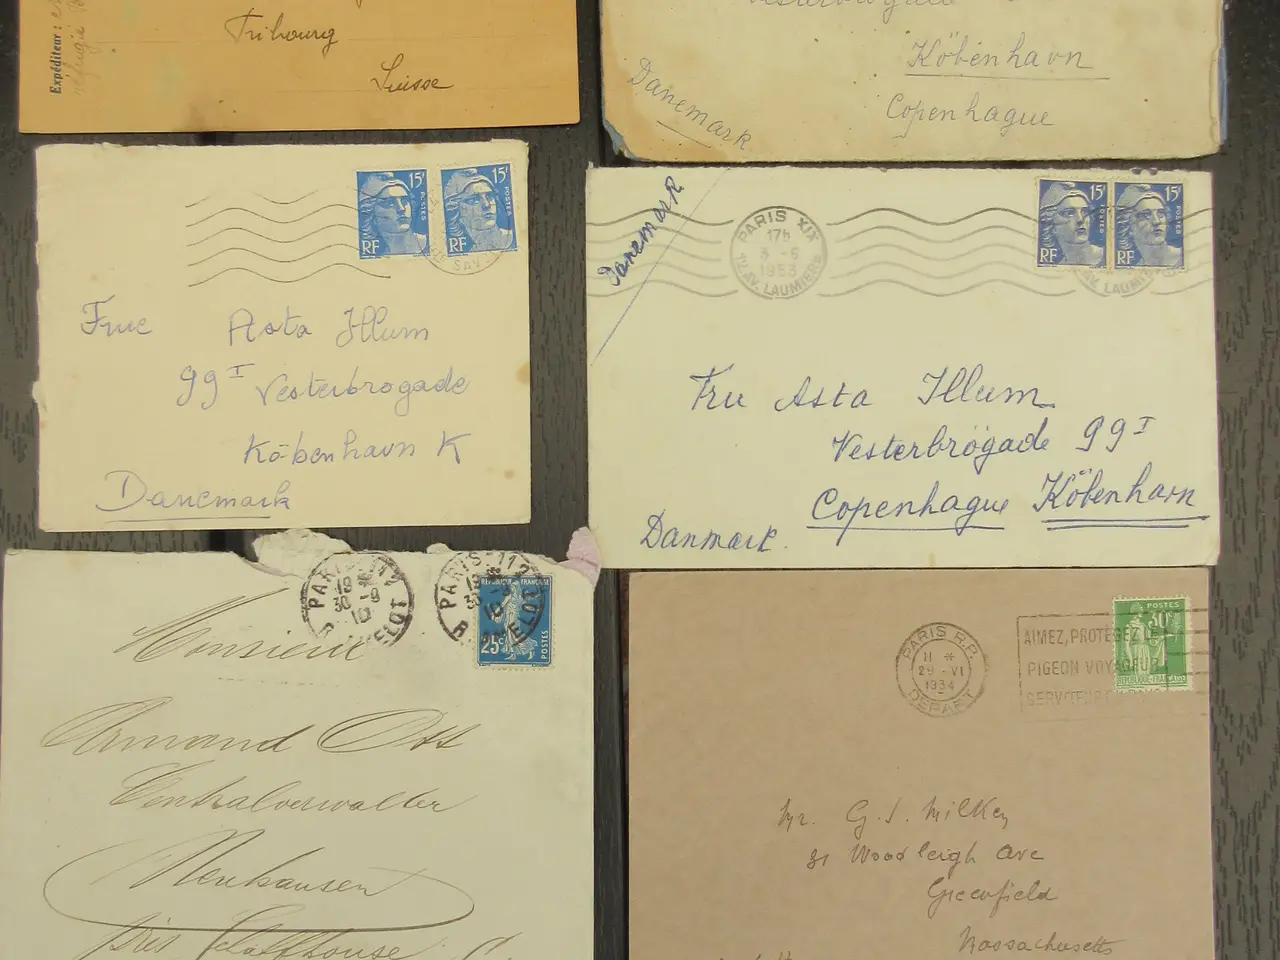 Expéditeur :
Fribourg
Suisse
Vesterbrogade
Köbenhavn
Copenhague
Danemark
15f
15f
POSTES
POSTES
RF
RF
SAV
Frue Asta Illum
99 I Vesterbrogade
Köbenhavn K
Danemark
Danemark
PARIS XIX
17h
3 -6
1953
AV. LAUMIERE
15f
15f
POSTES
POSTES
RF
RF
AV. LAUMIE
Fru Asta Illum
Vesterbrögade 99 I
Copenhague Köbenhavn
Danmark.
PARIS
30 -9
10
PARIS-112
RÉPUBLIQUE FRANÇAISE
25c
POSTES
Monsieur
Armand Ott
Centralverwalter
Neuhausen
près Schaffhouse
PARIS R.P.
11 *
29 -VI
1934
DEPART
AIMEZ, PROTEGEZ LE
PIGEON VOYAGEUR
SERVITEUR
POSTES
30c
REPUBLIQUE-FRANÇAISE
Mr. G. S. Milkey
31 Woodleigh Ave
Greenfield
Massachusetts